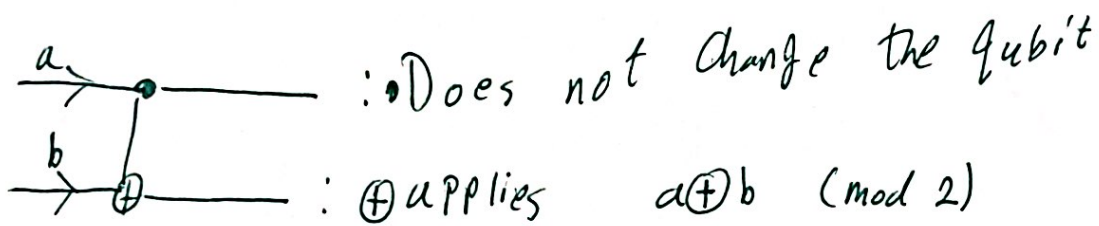 a : •Does not Change the qubit
b : ⊕ applies a⊕b (mod 2)